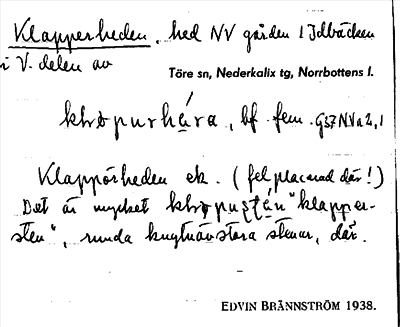 Klapperheden, hed NV gården 1 Idbäcken
i V. delen av
Töre sn, Nederkalix tg, Norrbottens l.
bf. fem. G37NVa2,1
Klappörheden ek. (felplacerad där!)
Det är mycket "klapper-
sten", runda knytnävstora stenar, där.
EDVIN BRÄNNSTRÖM 1938.